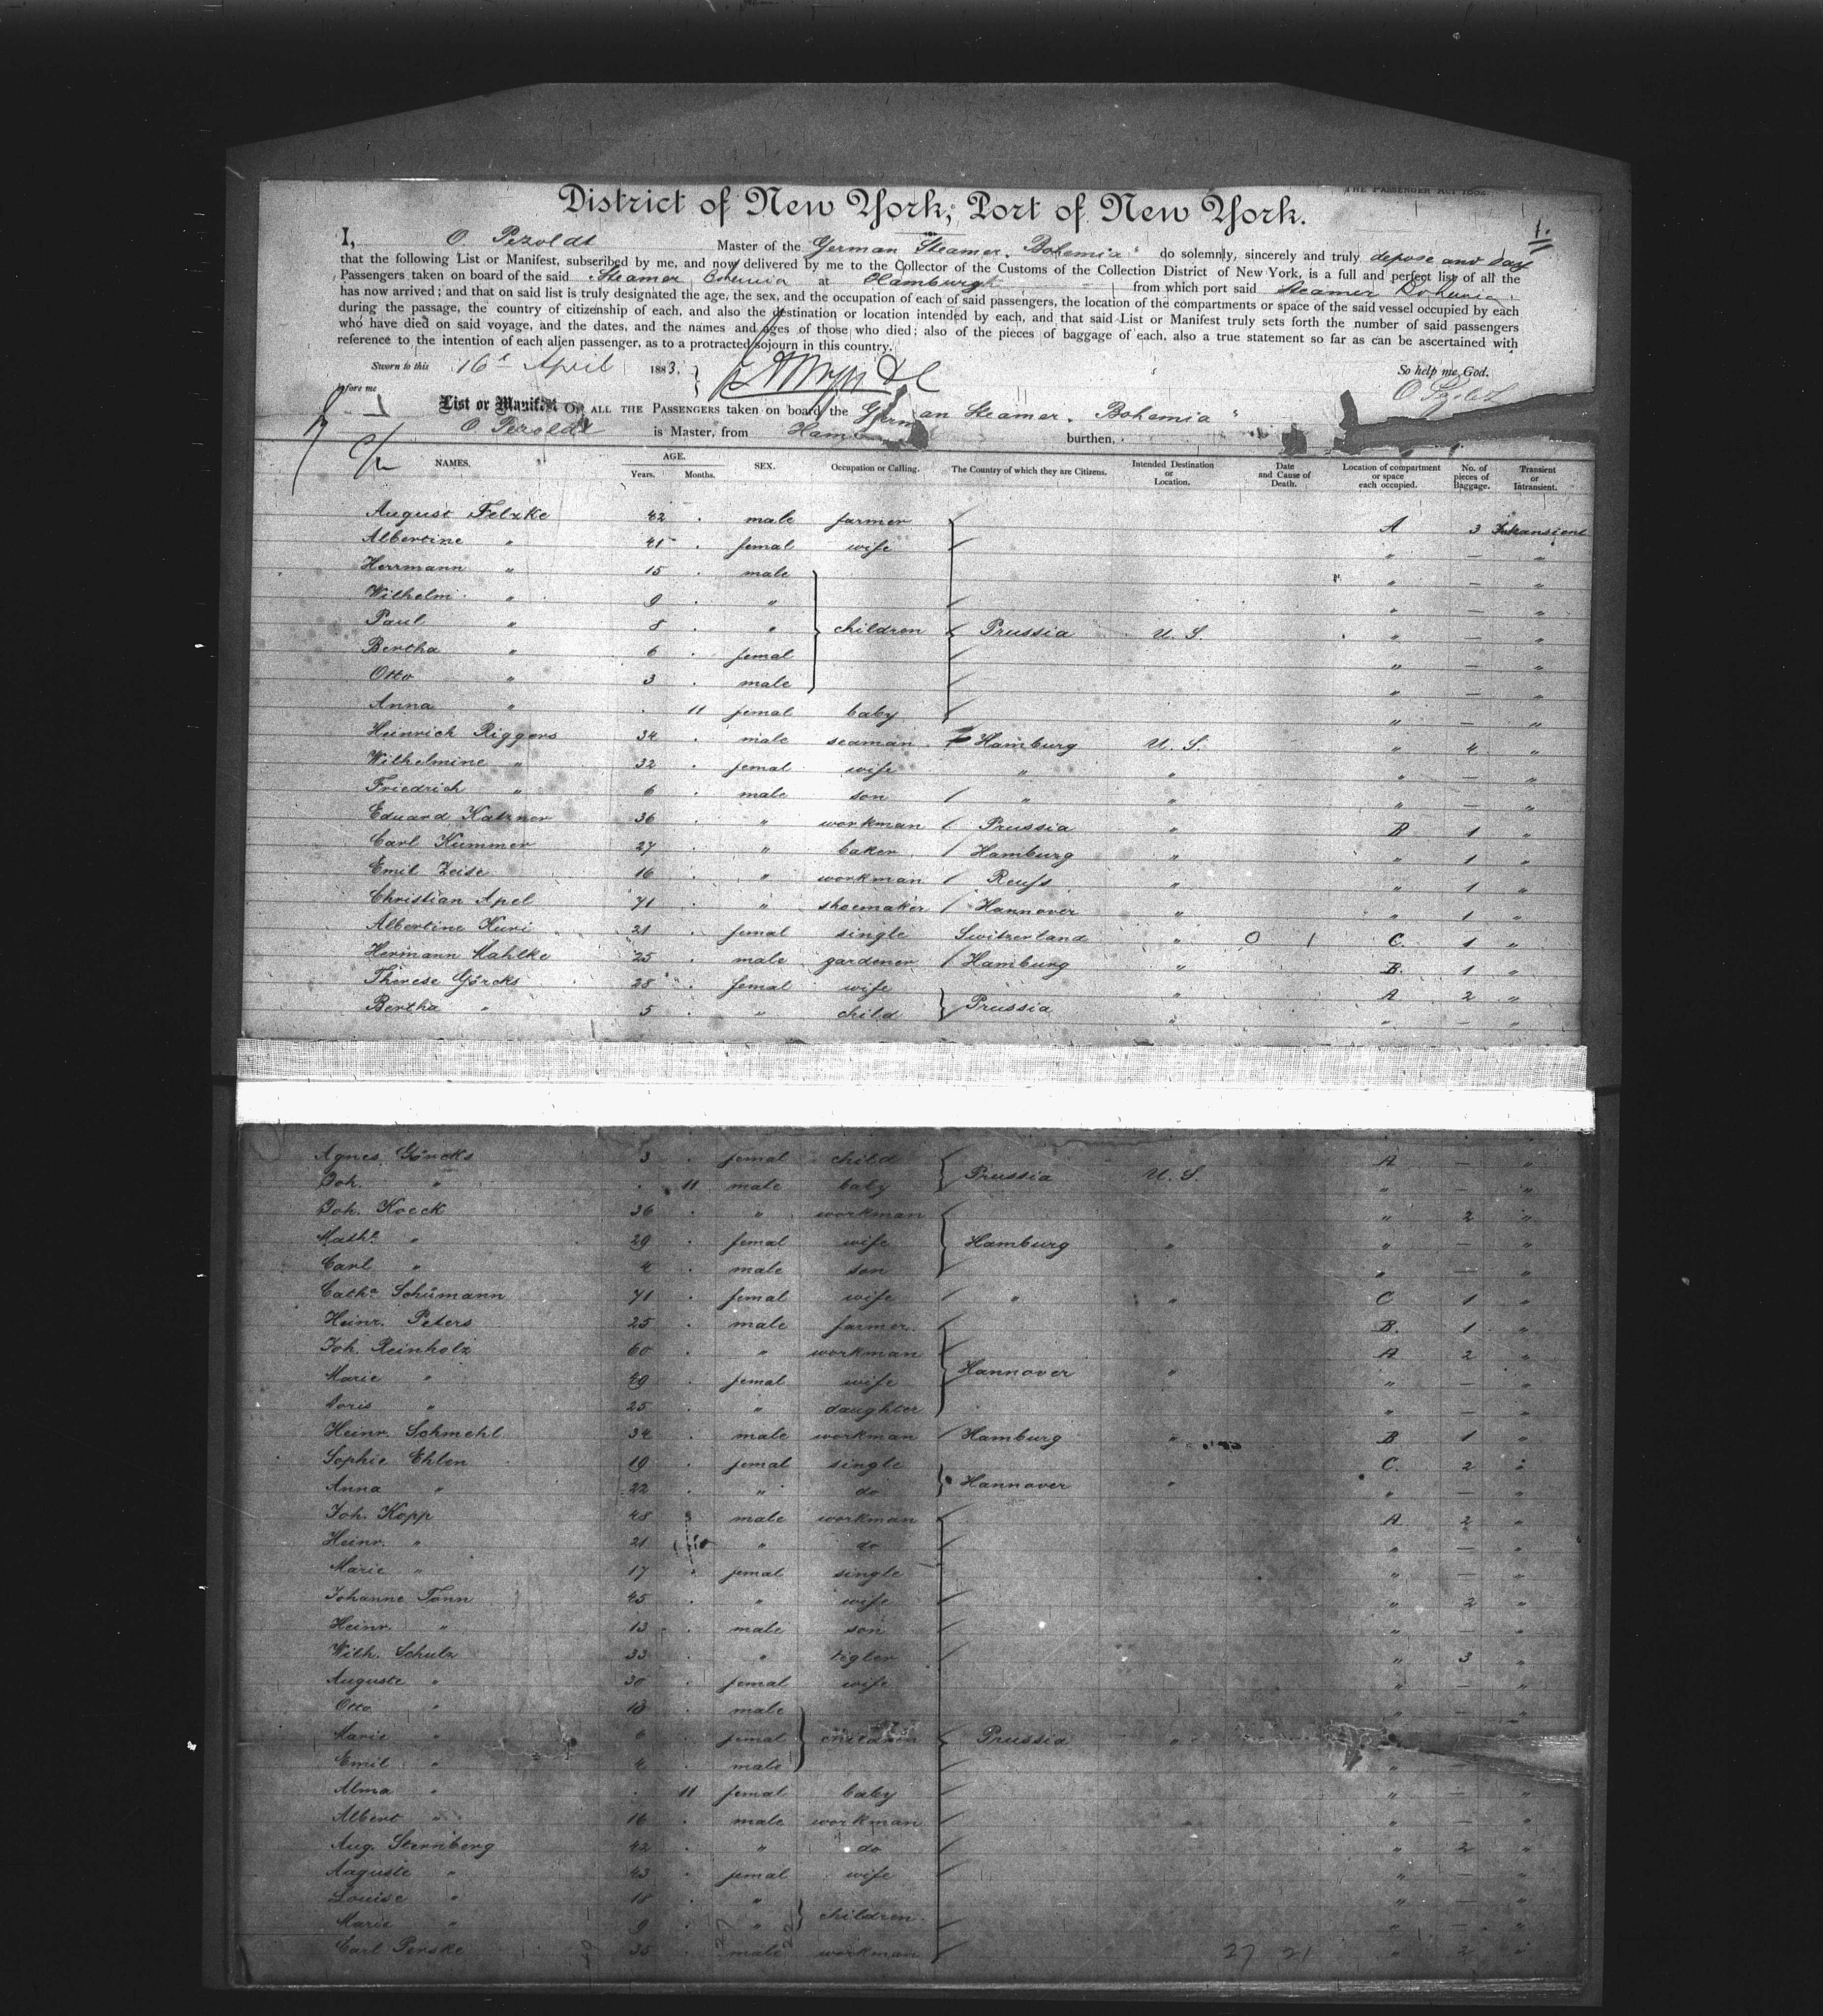 THE PASSENGER ACT 1882.
District of New York, Port of New York.
1.
I, O. Pezoldt Master of the German Steamer "Bohemia" do solemnly, sincerely and truly depose and say
that the following List or Manifest, subscribed by me, and now delivered by me to the Collector of the Customs of the Collection District of New York, is a full and perfect list of all the
Passengers taken on board of the said Steamer Bohemia at Hamburg from which port said Steamer Bohemia
has now arrived; and that on said list is truly designated the age, the sex, and the occupation of each of said passengers, the location of the compartments or space of the said vessel occupied by each
during the passage, the country of citizenship of each, and also the destination or location intended by each, and that said List or Manifest truly sets forth the number of said passengers
who have died on said voyage, and the dates, and the names and ages of those who died; also of the pieces of baggage of each, also a true statement so far as can be ascertained with
reference to the intention of each alien passenger, as to a protracted sojourn in this country.
Sworn to this 16 April 1883. So help me God.
before me
List or Manifest OF ALL THE PASSENGERS taken on board the German Steamer "Bohemia"
O Pezoldt is Master, from Ham burthen,
NAMES. AGE. Years. Months. SEX. Occupation or Calling. The Country of which they are Citizens. Intended Destination or Location. Date and Cause of Death. Location of compartment or space each occupied. No. of pieces of Baggage. Transient or Intransient.
August Felzke 42 . male farmer A 3 Intransient
Albertine " 41 . femal wife " — "
Herrmann " 15 . male " — "
Wilhelm " 9 . " " — "
Paul " 8 . " children Prussia U. S. " — "
Bertha " 6 . femal " — "
Otto " 3 . male " — "
Anna " . 11 femal baby " — "
Heinrich Riggers 34 . male seaman Hamburg U. S. " 4 "
Wilhelmine " 32 . femal wife " " " — "
Friedrich " 6 . male son " " " — "
Eduard Katzner 36 . " workman Prussia " B 1 "
Carl Kummer 27 . " baker Hamburg " " 1 "
Emil Zeise 16 . " workman Reuſs " " 1 "
Christian Apel 71 . " shoemaker Hannover " " 1 "
Albertine Kuri 21 . femal single Switzerland " 0 1 C. 1 "
Hermann Mahlke 25 . male gardener Hamburg " B. 1 "
Therese Görcks 28 . femal wife " A 2 "
Bertha " 5 . " child Prussia " " — "
Agnes Görcks 3 . femal child A — "
Joh. " . 11 male baby Prussia U. S. " — "
Joh. Koeck 36 . " workman " 2 "
Math. " 29 . femal wife Hamburg " " — "
Carl " 4 . male son " — "
Cath. Schümann 71 . femal wife " " C 1 "
Heinr. Peters 25 . male farmer B. 1 "
Joh. Reinholz 60 . " workman A 2 "
Marie " 49 . femal wife Hannover " " — "
Doris " 25 . " daughter " — "
Heinr. Schmehl 34 . male workman Hamburg " B 1 "
Sophie Ehlen 19 . femal single C. 2 "
Anna " 22 . " do Hannover " " — "
Joh. Kopp 48 male workman A 2 "
Heinr. " 21 " do " — "
Marie " 17 . femal single " — "
Johanne Tonn 45 . " wife " 2 "
Heinr. " 13 . male son " — "
Wilh. Schulz 33 . " tigler " 3 "
Auguste " 30 . femal wife " — "
Otto " 10 . male " — "
Marie " 6 femal children Prussia "
Emil " 4 . male " —
Alma " . 11 femal baby " — "
Albert " 16 . male workman " " — "
Aug. Sternberg 42 . " do " 2 "
Auguste " 43 . femal wife " — "
Louise " 18 . " " — "
Marie " 9 . " children " — "
Carl Perske 35 . male workman 27 21 " 2 "